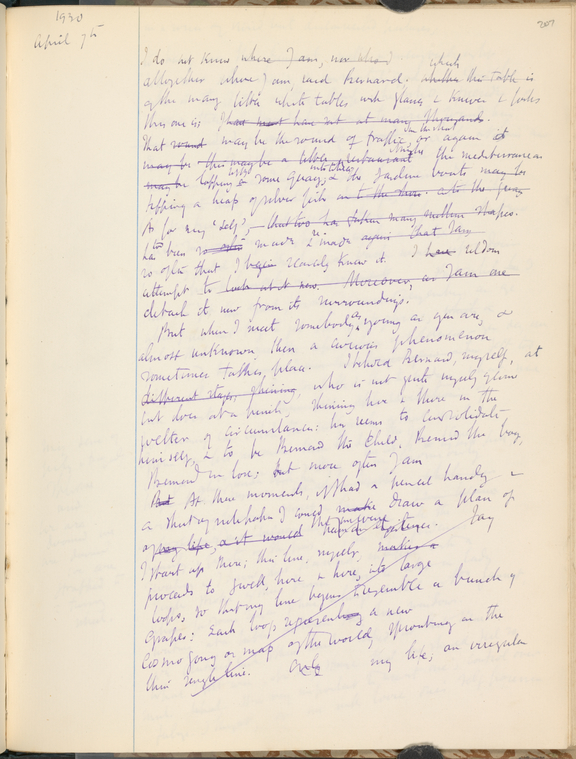 1930
April 7th
207
I do not know where I am, nor
which
altogether where I am said Bernard. whether this table is
of the many little white tables with glasses & knives & forks
this one is; I have sat at many thousands.
That sound may be the sound of traffic, or again
may be this may be a little restaurant the mediterranean
maybe lopping some quays, & the sardine boats may be
tipping a heap of silver fish on to the quay
As for my "self", that too has taken many million shapes.
has been so often made & remade again that I am
so often that I begin scarcely know it. I have seldom
attempt to look at it now. Moreover, as I am one
detach it now from its surroundings.
But when I meet somebody, as young as you are, &
almost unknown, then a curious phenomenon
sometimes takes place. I behold Bernard, myself, at
different stages, shining, who is not quite myself
but does at a pinch, shining here & there in the
welter of circumstance: he seems to consolidate
himself, & to be Bernard the child, Bernard the boy,
Bernard in love; But more often I am
But At these moments, if I had a pencil handy &
a sheet of notepaper I could make draw a plan of
of my life, as it would the
existence. Say
I start up there; this line, myself, makes a
proceeds to swell, here & here, into large
loops, so that my line begins to resemble a bunch of
grapes: Each loop representing a new
Cosmogony or map of the world, sprouting on the
thin single line. Only my life, an irregular